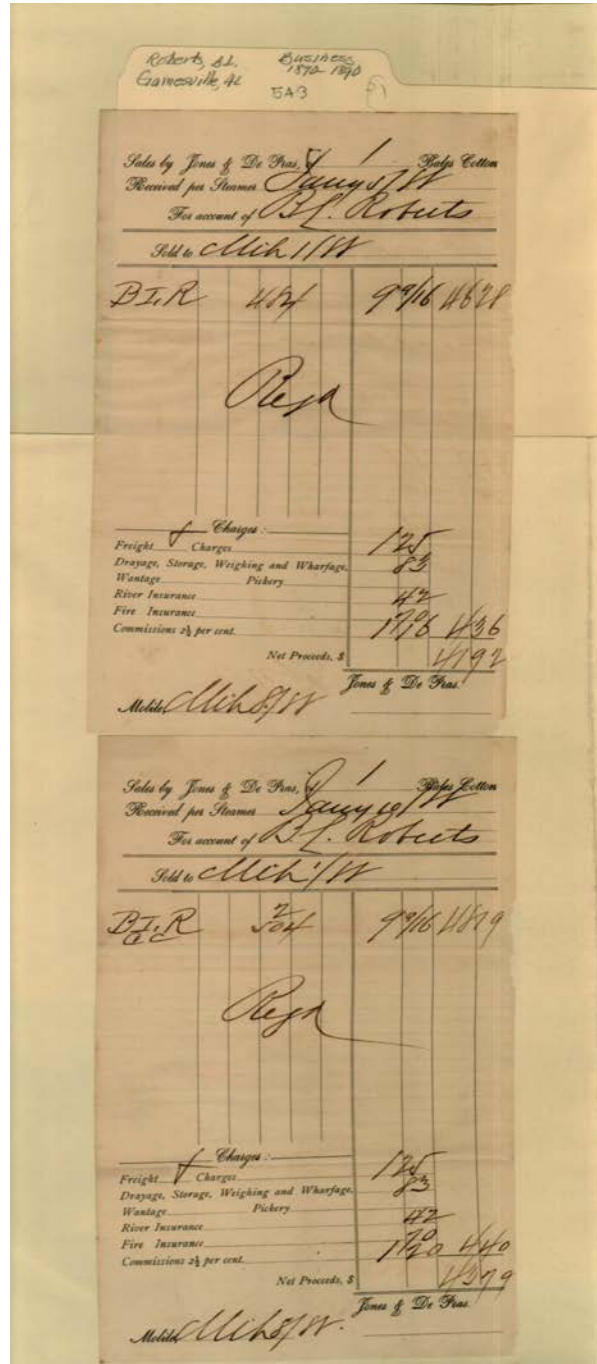 Roberts, B.L. Business
Gainesville, AL 1870-1890
5A3
Sales by Jones & De Fras, of 1 Bales Cotton
Received per Steamer
For account of B.L. Roberts
Sold to Mch 1/
BLR 484 9 9/16 4628
Regd
Charges:
Freight Charges 125
Drayage, Storage, Weighing and Wharfage, 83
Wantage Pickery
River Insurance 42
Fire Insurance 70
Commissions 2½ per cent. 116 436
Net Proceeds, $ 4192
Jones & De Fras.
Mobile, Mch 8/
Sales by Jones & De Fras, of 1 Bales Cotton
Received per Steamer
For account of B.L. Roberts
Sold to Mch 1/
BLR 504 9 9/16 4819
Regd
Charges:
Freight Charges 125
Drayage, Storage, Weighing and Wharfage, 83
Wantage Pickery
River Insurance 42
Fire Insurance 70
Commissions 2½ per cent. 120 440
Net Proceeds, $ 4379
Jones & De Fras.
Mobile, Mch 8/